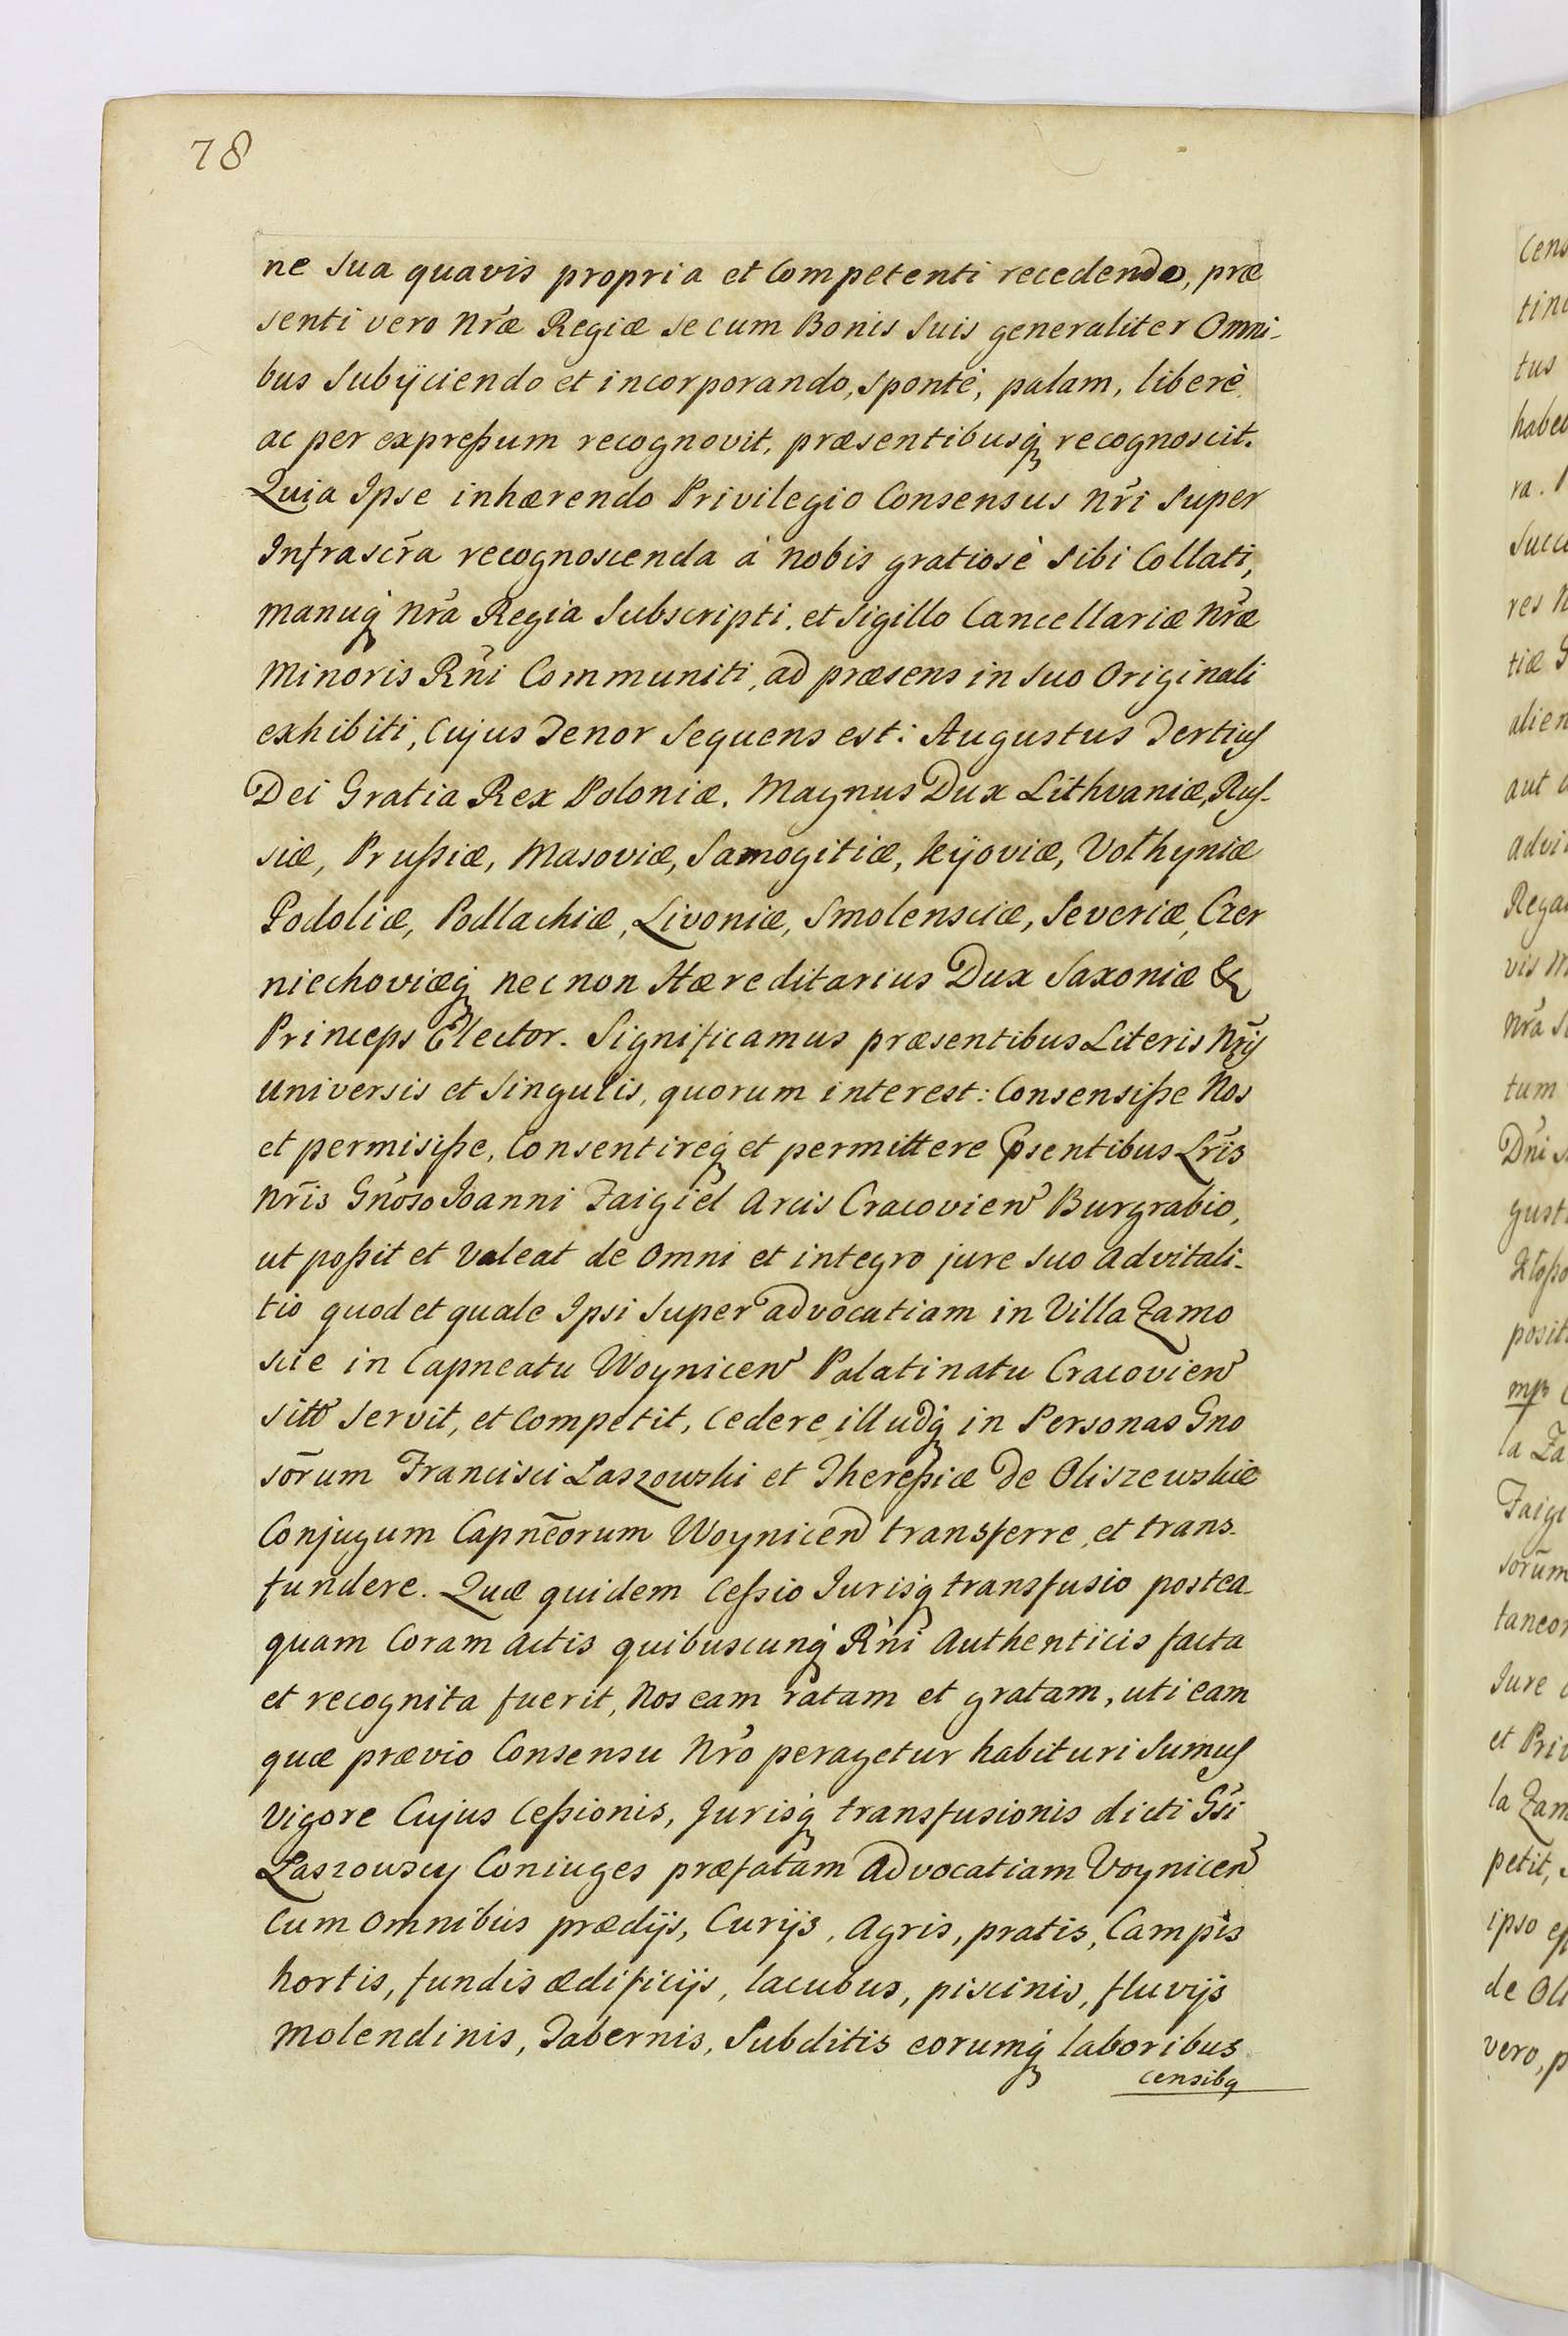 78
ne sua quavis propria et Competenti recedendo, præ
senti vero Nr̃æ Regiæ se cum Bonis Suis generaliter Omni-
bus Subÿciendo et incorporando, sponte, palam, liberè
ac per expreßum recognovit, præsentibusq; recognoscit.
Quia Ipse inhærendo Privilegio Consensus Nr̃i Super
Infrascr̃a recognoscenda à nobis gratiosè Sibi Collati,
manuq; Nr̃a Regia Subscripti, et Sigillo Cancellariæ Nr̃æ
Minoris Rñi Communiti, ad præsens in Suo Originali
exhibiti, Cujus Tenor Sequens est: Augustus Tertius
Dei Gratia Rex Poloniæ, Magnus Dux Lithvaniæ, Rus-
siæ, Prußiæ, Masoviæ, Samogitiæ, Kijoviæ, Volhyniæ
Podoliæ, Podlachiæ, Livoniæ, Smolensciæ, Severiæ, Czer
niechoviæq; nec non Hæreditarius Dux Saxoniæ &
Princeps Elector. Significamus præsentibus Literis Nr̃is
Universis et Singulis, quorum interest: Consensiße Nos
et permisiße, Consentireq; et permittere p̃sentibus Lr̃is
Nr̃is Gñoso Joanni Faigiel Arcis Cracovien̄ Burgrabio,
ut poßit et Valeat de Omni et integro jure Suo Advitali-
tio quod et quale Ipsi Super advocatiam in Villa Zamo
scie in Capneatu Woynicen̄ Palatinatu Cracovien̄
sitō Servit, et Competit, Cedere illudq; in Personas Gno
sõrum Francisci Laszowski et Thereßiæ De Oliszewskie
Conjugum Capnẽorum Woynicen̄ transferre, et trans-
fundere. Quæ quidem Ceßio Jurisq; transfusio postea
quam Coram Actis quibuscunq; Rñi Authenticis facta
et recognita fuerit, Nos eam ratam et gratam, uti eam
quæ prævio Consensu Nr̃o peragetur habituri Sumus
Vigore Cujus Ceßionis, Jurisq; transfusionis dicti Gsi
Laszowscy Coniuges præfatam Advocatiam Voynicen̄
Cum Omnibus prædijs, Curijs, Agris, pratis, Campis
hortis, fundis ædificijs, lacubus, piscinis, fluvijs
Molendinis, Tabernis, Subditis eorumq; laboribus
censibq
Cens
tine
tus
habe
ra.
Succe
res N
tiæ G
alien
aut
advi
Rega
vis M
Nr̃a S
tum
Dñi
gust
posit
mp
la Za
Faigi
sorũm
taneor
Jure
et Pri
la Zam
petit,
ipso
de Oli
vero, p